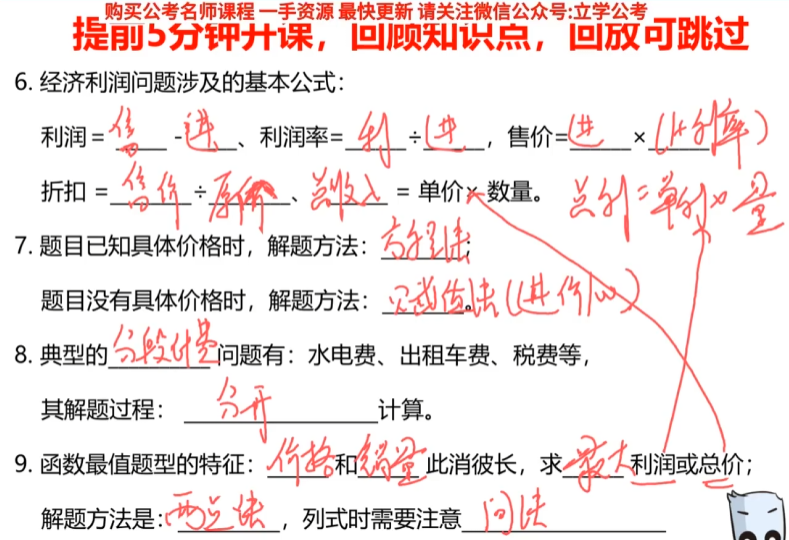 购买公考名师课程 一手资源 最快更新 请关注微信公众号:立学公考
提前5分钟开课，回顾知识点，回放可跳过
6. 经济利润问题涉及的基本公式：
利润=售-进、利润率=利÷进，售价=进×(1+利率)
折扣 =售价÷原价、总收入 = 单价×数量。 总利=单利×量
7. 题目已知具体价格时，解题方法：方程法;
题目没有具体价格时，解题方法：赋值法(进价100)。
8. 典型的分段计费问题有：水电费、出租车费、税费等，
其解题过程：分开计算。
9. 函数最值题型的特征：价格和销量此消彼长，求最大利润或总价；
解题方法是:两点法，列式时需要注意问法